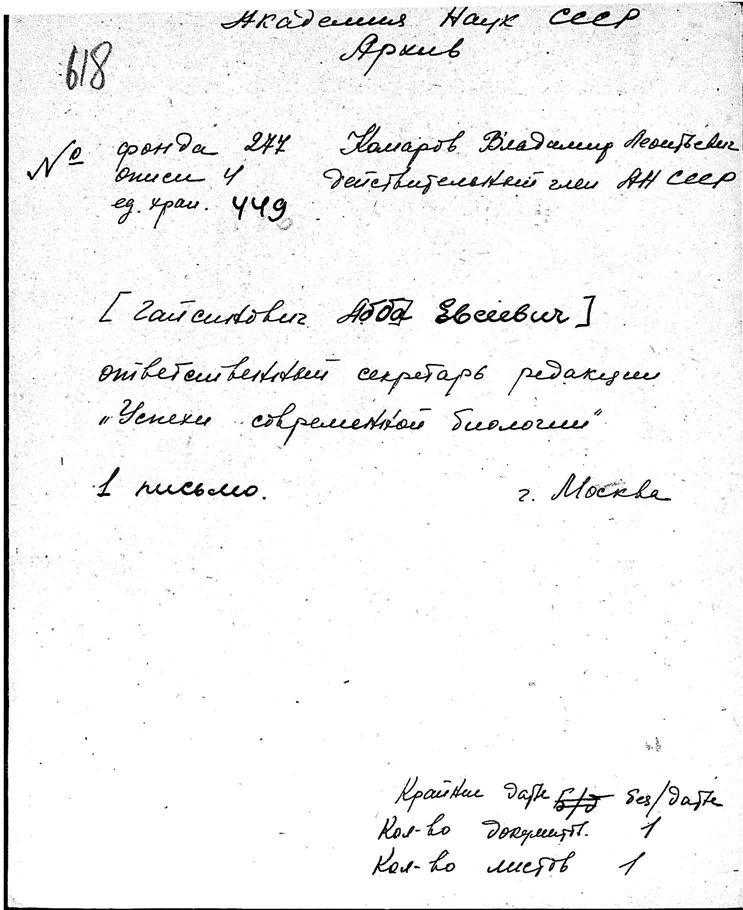 Академия Наук СССР
Архив
618
№ фонда 277 Комаров Владимир Леонтьевич
описи 4 действительный член АН СССР
ед. хран. 449
[Гайсинович Абба Евсеевич]
ответственный секретарь редакции
„Успехи современной биологии“
1 письмо. г. Москва
Крайние даты б/д без/даты
Кол-во документ. 1
Кол-во листов 1